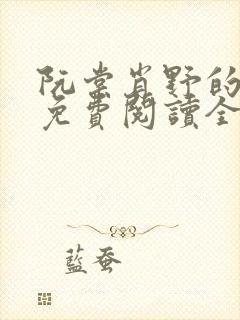 阮棠肖野的
免費閱讀全
藍蚕